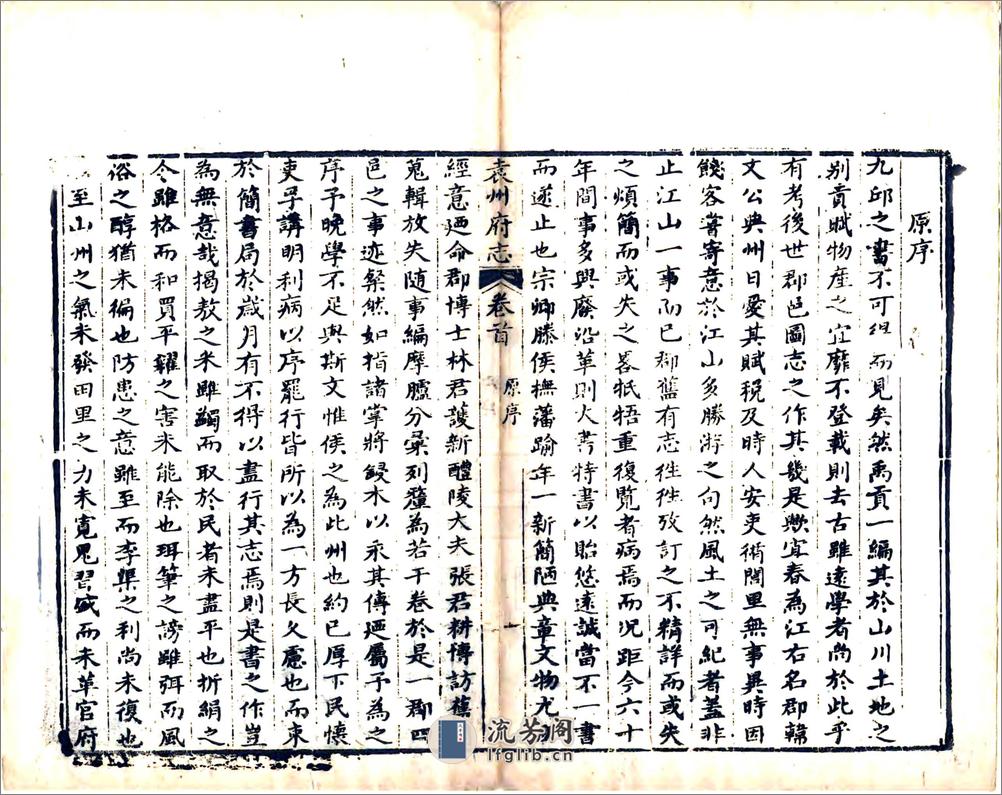 原序
九邱之書不可得而見矣然禹貢一編其於山川土地之
別貢賦物産之宜靡不登載則去古雖遠學者尚於此乎
有考後世郡邑圖志之作其幾是歟宜春為江右名郡韓
文公典州日愛其賦稅及時人安吏術閭里無事異時因
餞客嘗寄意於江山多勝游之句然風土之可紀者蓋非
止江山一事而已郡舊有志徃徃攷訂之不精詳而或失
之煩簡而或失之畧牴牾重復覽者病焉而况距今六十
年間事多興廢沿革則大書特書以貽悠遠誠當不一書
而遂止也宗卿滕侯撫藩踰年一新簡陋典章文物尤
袁州府志
卷首
原序
十
經意廼命郡博士林君護新醴陵大夫張君耕博訪舊
蒐輯放失随事編摩臚分彙列釐為若干卷於是一郡四
邑之事迹粲然如指諸掌將鋟木以永其傳廼屬予為之
序予晚學不足與斯文惟侯之為此州也約已厚下民懷
吏孚講明利病以序罷行皆所以為一方長久慮也而束
於簡書局於歲月有不得以盡行其志焉則是書之作豈
為無意哉揭敖之米雖蠲而取於民者未盡平也折絹之
令雖格而和買平糴之害未能除也珥筆之謗雖弭而風
俗之醇猶未徧也防患之意雖至而李渠之利尚未復也
至山州之氣未發田里之力未寛鬼習盛而未革官府
流芳阁
lfglib.cn